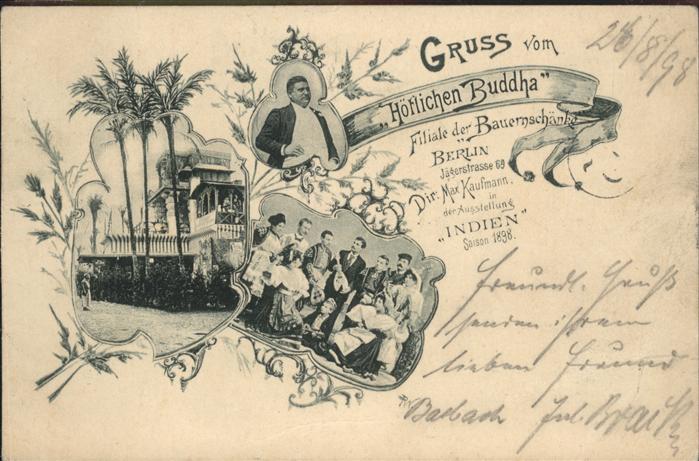 GRUSS vom
26/8/98
„Höflichen Buddha"
Filiale der „Bauernschänke"
BERLIN
Jägerstrasse 69
Dir. Max Kaufmann.
in
der Ausstellung
„INDIEN"
Saison 1898.
Freundl. Gruß
senden ihrem
lieben Freund
Jul.